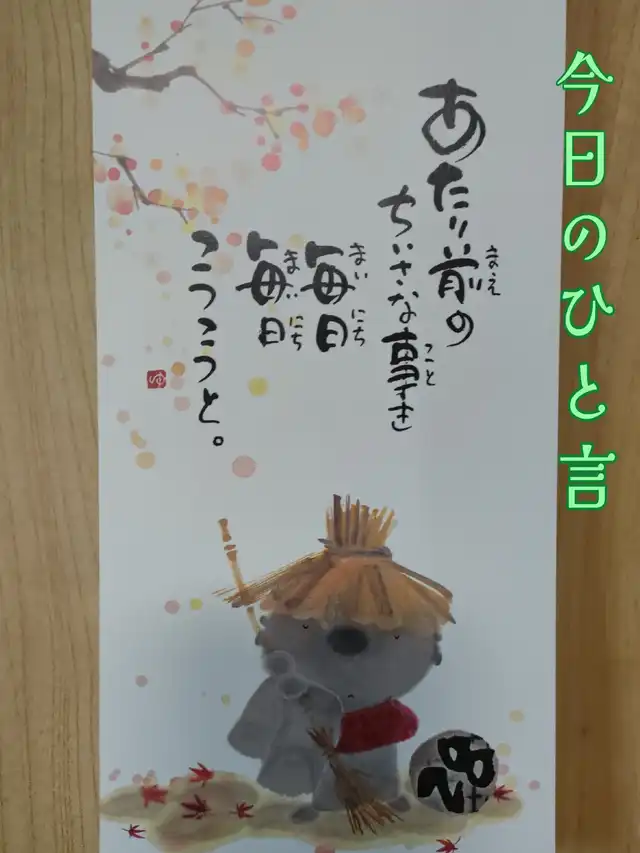 今日のひと言
あたり前の
まえ
ちいさな事を
こと
毎日
まいにち
毎日
まいにち
こつこつと。